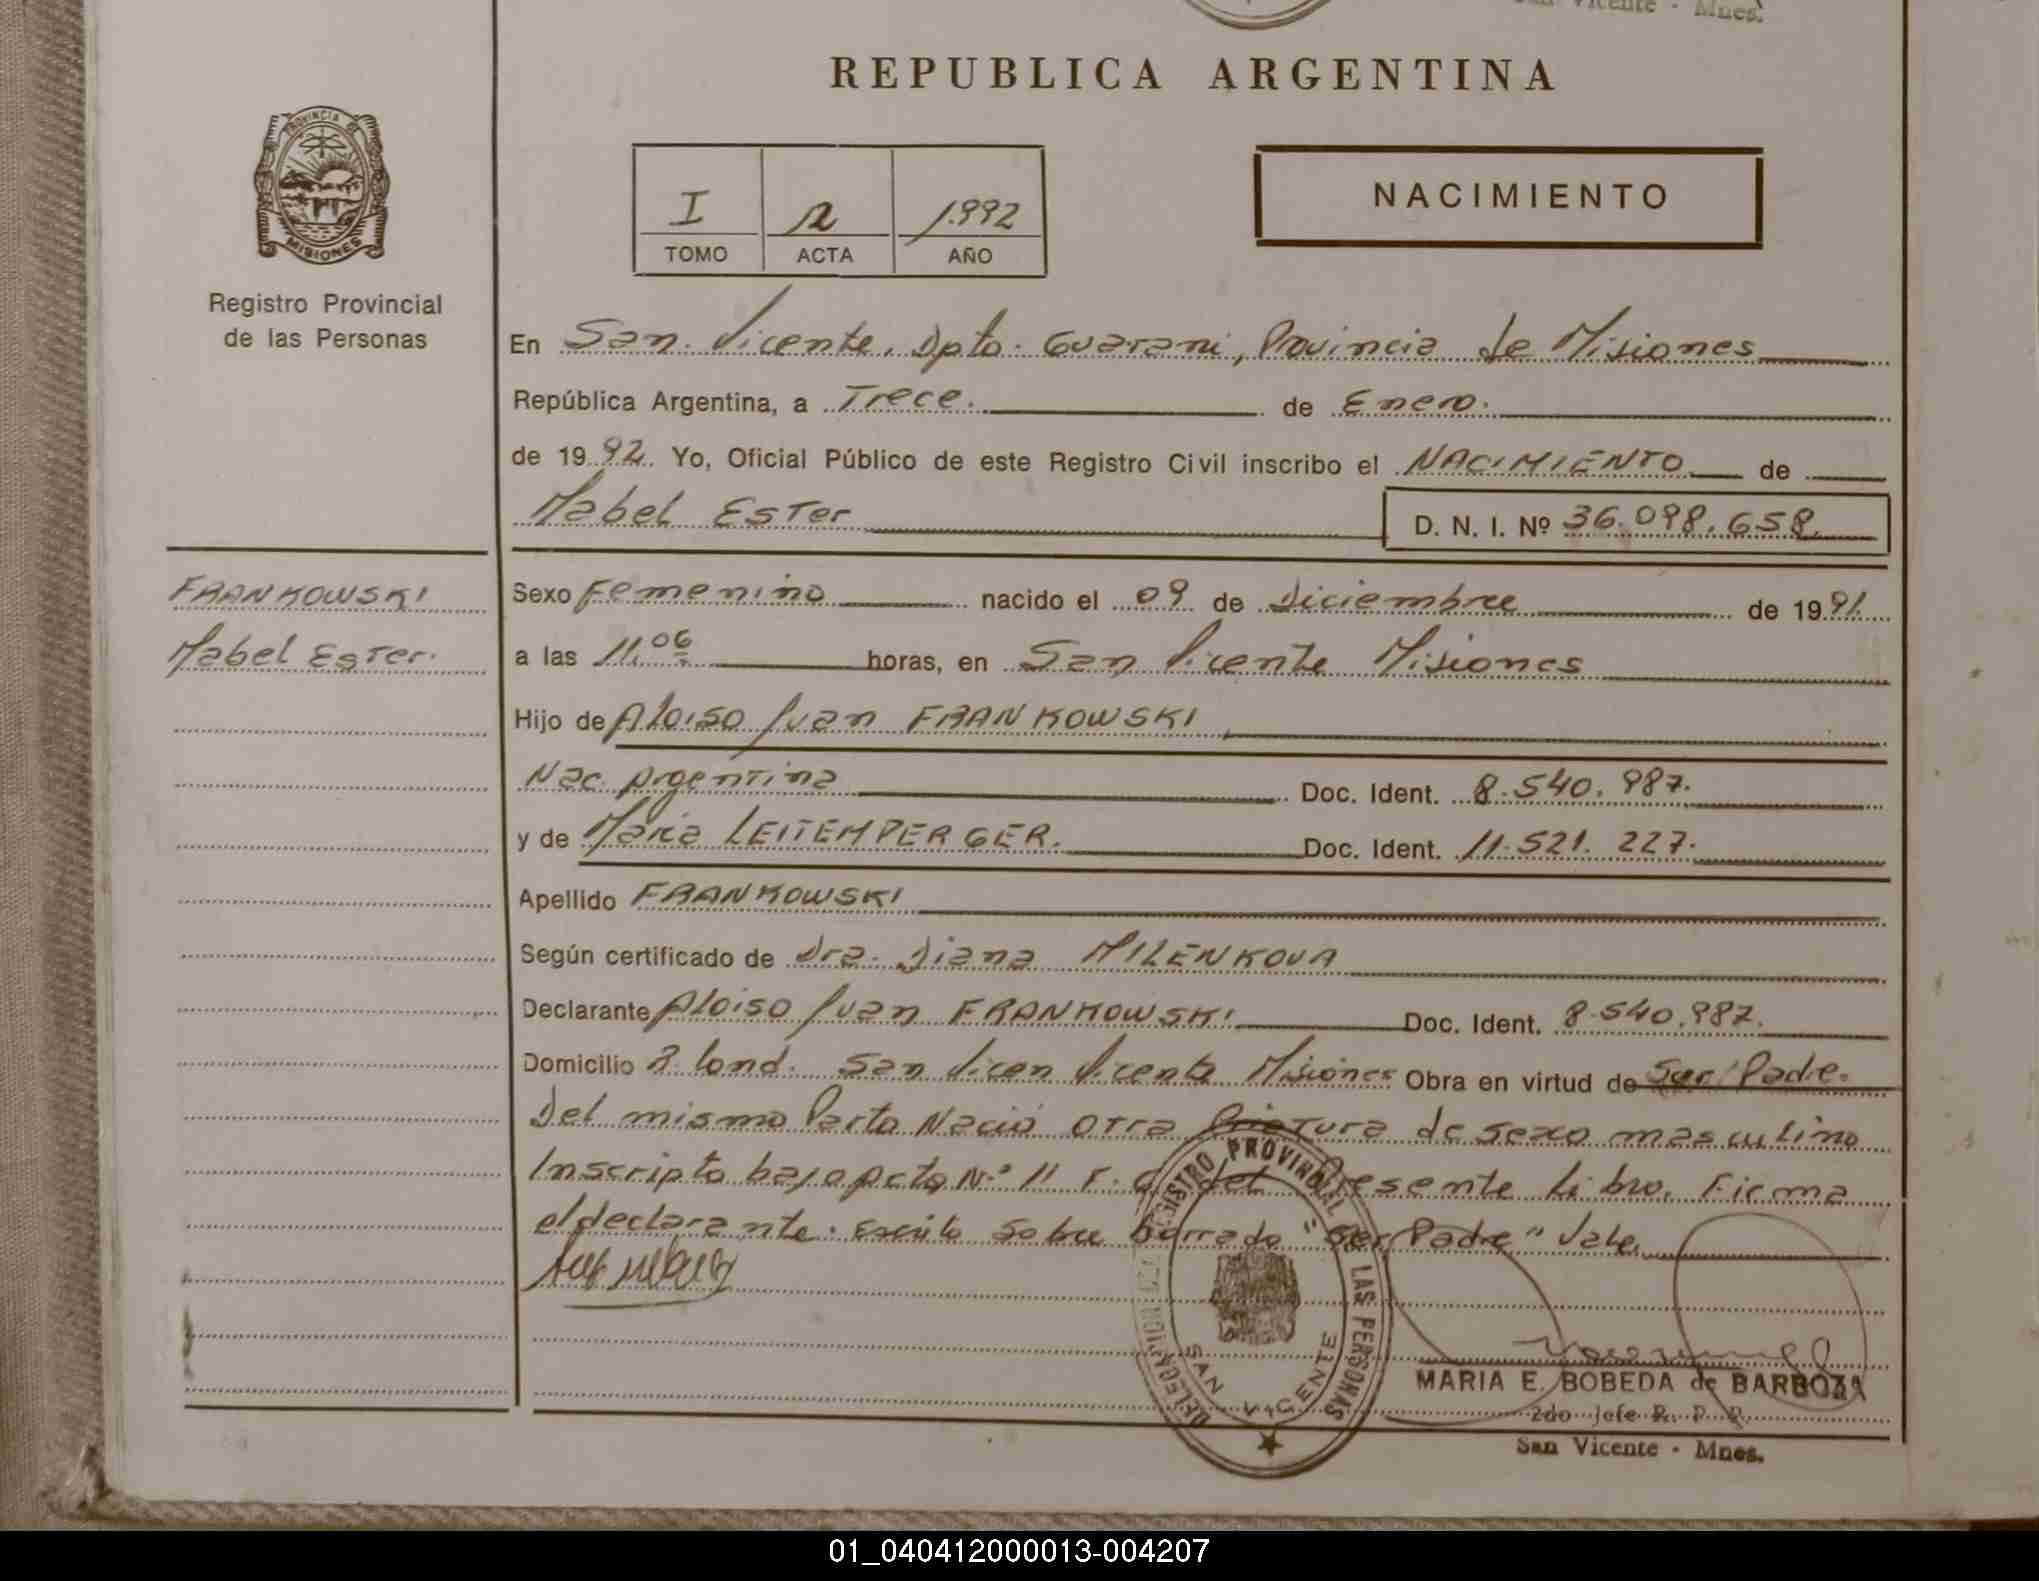 San Vicente - Mnes.
REPUBLICA ARGENTINA
PROVINCIA DE
MISIONES
Registro Provincial
de las Personas
I 2 1.992
TOMO ACTA AÑO
NACIMIENTO
En San Vicente, Dpto. Guarani, Provincia de Misiones
República Argentina, a Trece. de Enero.
de 1992. Yo, Oficial Público de este Registro Civil inscribo el NACIMIENTO de
Mabel Ester D. N. I. Nº 36.098.658.
FRANKOWSKI
Mabel Ester.
Sexo Femenino nacido el 09 de Diciembre de 1991
a las 11.06 horas, en San Vicente Misiones
Hijo de Aloiso Juan FRANKOWSKI
Nac. Argentina Doc. Ident. 8.540.987.
y de Maria LEITEMPERGER. Doc. Ident. 11.521.227.
Apellido FRANKOWSKI
Según certificado de Dra. Diana MILENKOVA
Declarante Aloiso Juan FRANKOWSKI Doc. Ident. 8.540.987.
Domicilio San Vicen Vicente Misiones Obra en virtud de Ser/Padre.
Del mismo Parto Nació otra Criatura de sexo masculino
Inscripto bajo Acta Nº 11 F. del Presente Libro. Firma
el declarante. Escrito sobre borrado "Ser/Padre" Vale.
REGISTRO PROVINCIAL DE LAS PERSONAS
DELEGACION
SAN VICENTE
MARIA E. BOBEDA de BARBOZA
2do Jefe R. P. P.
San Vicente - Mnes.
01_040412000013-004207